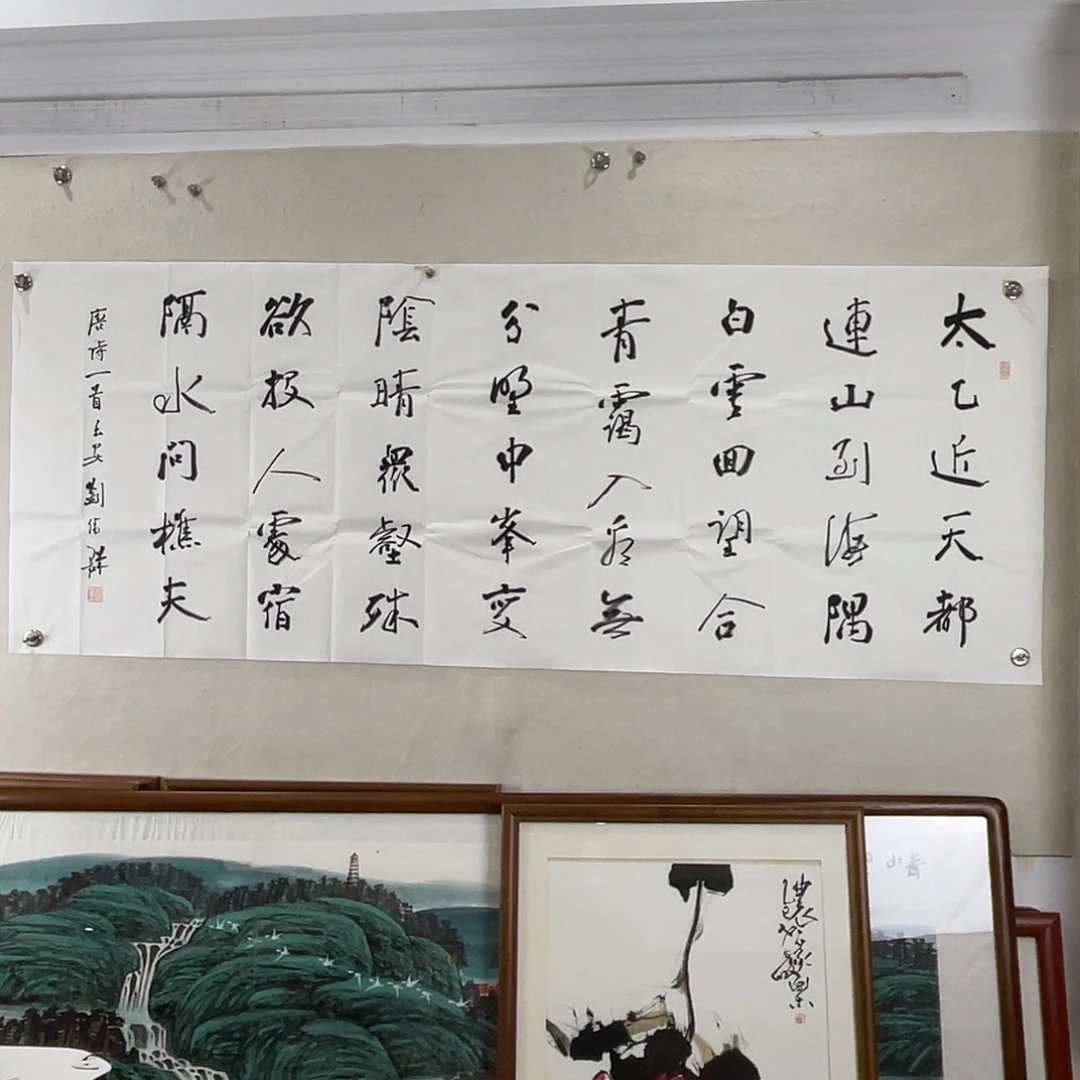 太乙近天都
連山到海隅
白雲回望合
青靄入看無
分野中峯變
陰晴衆壑殊
欲投人處宿
隔水問樵夫
唐诗一首
劉